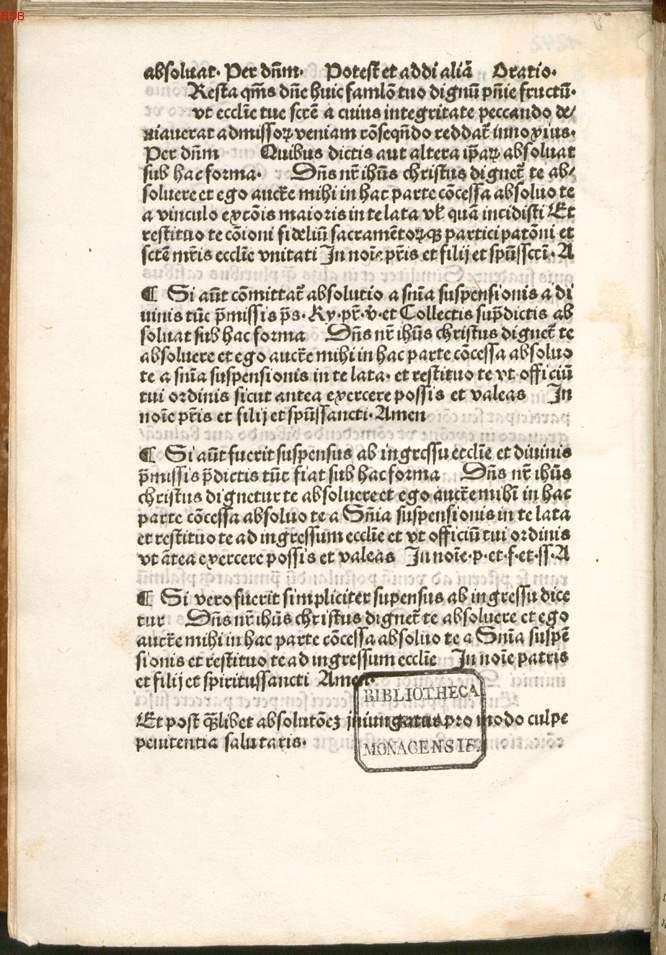 absoluat· Per dñm· Potest et addi aliā Oratio·
Resta q̄ms dñe huic famlō tuo dignū pñie fructū·
vt eccl̄ie tue scr̄e a cuius integritate peccando de/
uiauerat admissoꝝ veniam cōseqñdo reddat̄ innoxius·
Per dñm Quibus dictis aut altera ip̄aꝝ absoluat
sub hac forma· Dñs nr̄ ihūs christus dignet̄ te ab/
soluere et ego auctr̄e mihi in hac parte cōcessa absoluo te
a vinculo excōis maioris in te lata vl̄ quā incidisti Et
restituo te cōioni fideliū sacramētoꝝqꝫ participatōni et
scte mr̄is eccl̄ie vnitati In noīe pr̄is et filij et spūsscti· A
¶ Si aūt cōmittat̄ absolutio a snīa suspensionis a di
uinis tūc p̄missis p̄s· Ky· pr̄· v· et Collectis sup̄dictis ab
soluat sub hac forma Dñs nr̄ ihūs christus dignet̄ te
absoluere et ego auctr̄e mihi in hac parte cōcessa absoluo
te a snīa suspensionis in te lata· et restituo te vt officiū
tui ordinis sicut antea exercere possis et valeas In
noīe pr̄is et filij et spūssancti· Amen
¶ Si aūt fuerit suspensus ab ingressu eccl̄ie et diuinis
p̄missis p̄dictis tūc fiat sub hac forma Dñs nr̄ ihūs
christus dignetur te absoluere et ego auctr̄e mihī in hac
parte cōcessa absoluo te a Snīa suspensionis in te lata
et restituo te ad ingressum eccl̄ie et vt officiū tui ordinis
vt ātea exercere possis et valeas In noīe· p· et· f· et· ss· A
¶ Si vero fuerit simpliciter supensus ab ingressu dice
tur Dñs nr̄ ihūs christus dignet̄ te absoluere et ego
auctr̄e mihi in hac parte cōcessa absoluo te a Snīa suspē
sionis et restituo te ad ingressum eccl̄ie In noīe patris
et filij et spiritussancti Amen
BIBLIOTHECA
Et post q̄libet absolutōeꝫ iniungatur pro modo culpe
penitentia salutaris·
MONACENSIS.